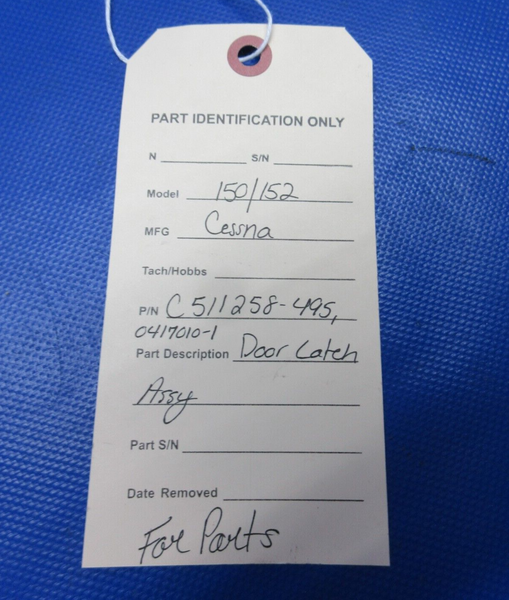 PART IDENTIFICATION ONLY
N S/N
Model 150/152
MFG Cessna
Tach/Hobbs
P/N C511258-495,
0417010-1
Part Description Door Latch
Assy
Part S/N
Date Removed
For Parts